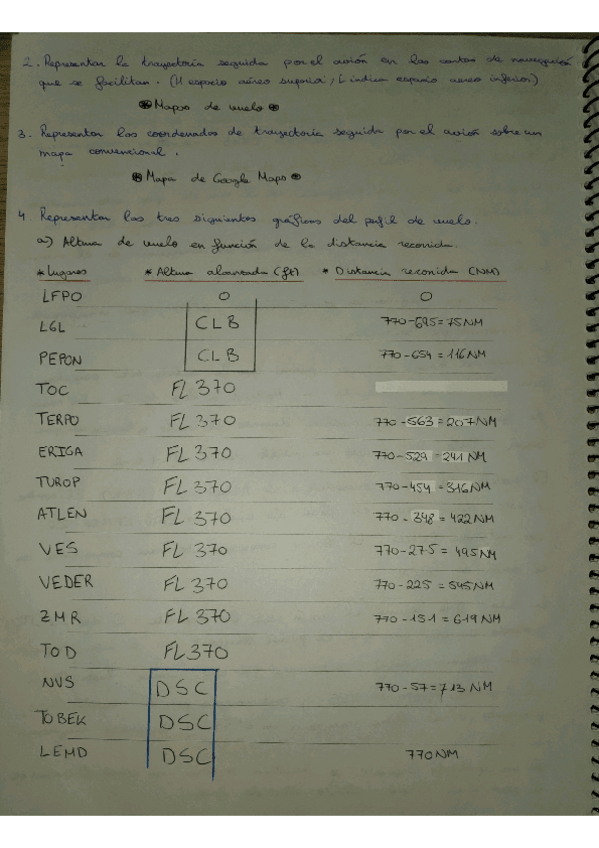 2. Representar la trayectoria seguida por el avión en las cartas de navegación
que se facilitan. (U espacio aéreo superior; L indica espacio aereo inferior)
Mapas de vuelo
3. Representar las coordenadas de trayectoria seguida por el avión sobre un
mapa convencional.
Mapa de Google Maps
4 Representar las tres siguientes gráficas del perfil de vuelo.
a) Altura de vuelo en función de la distancia recorrida.
* Lugares * Altura alcanzada (ft) * Distancia recorrida (NM)
LFPO 0 0
LGL CLB 770-695=75NM
PEPON CLB 770-654=116NM
TOC FL 370
TERPO FL 370 770-563=207NM
ERIGA FL 370 770-529=241NM
TUROP FL 370 770-454=316NM
ATLEN FL 370 770-348=422NM
VES FL 370 770-275=495NM
VEDER FL 370 770-225=545NM
ZMR FL 370 770-151=619NM
TOD FL 370
NVS DSC 770-57=713NM
TOBEK DSC
LEMD DSC 770NM